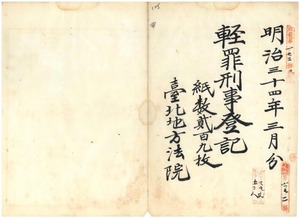 明治三十四年三月分
輕罪刑事登記
紙数貳百九枚
臺北地方法院